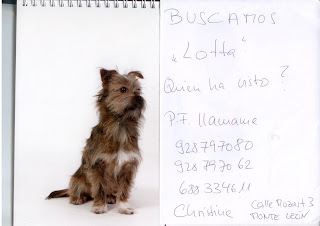 BUSCAMOS
„Lotta“
Quien ha visto?
P.F. llamame
928797080
928797062
688334611
Christine Calle Mozart 3
MONTE LEÓN